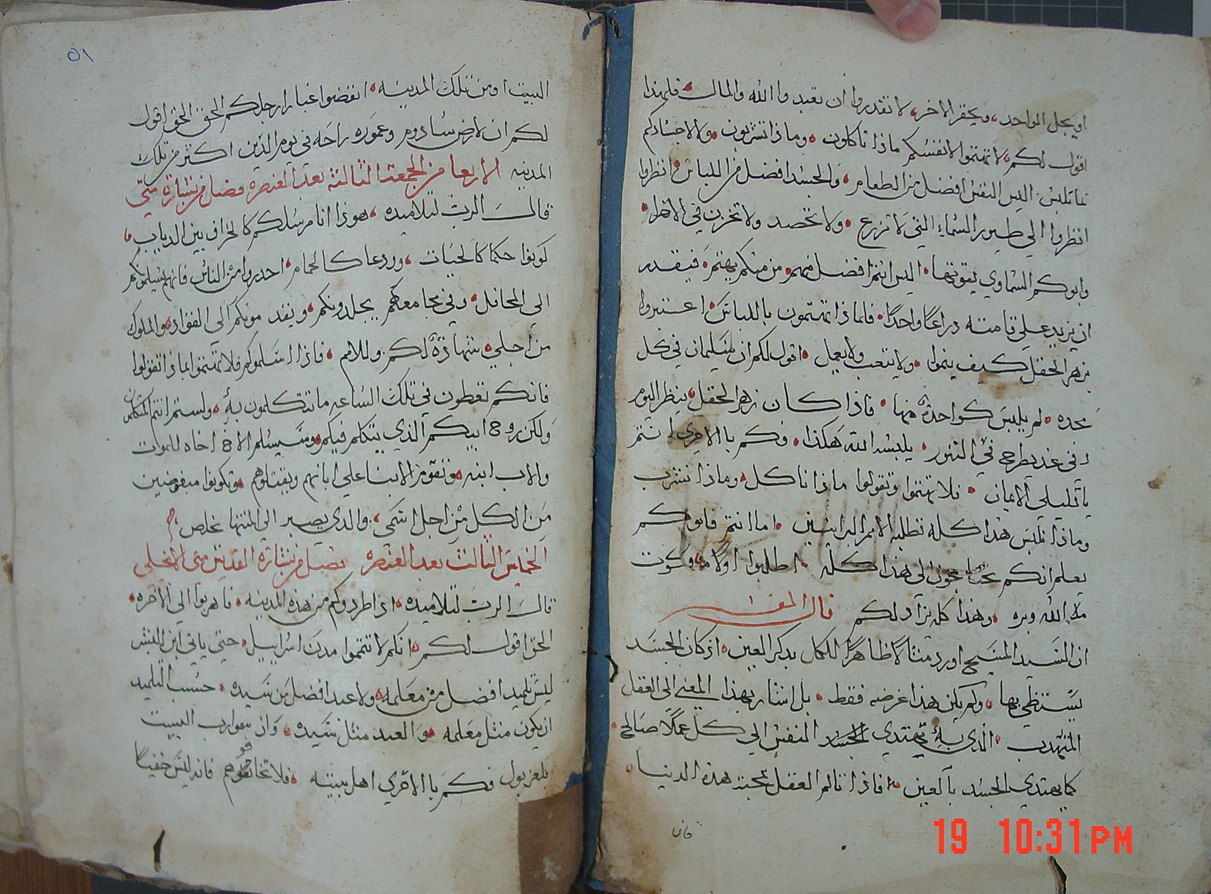 او يجل الواحد، ويحقر الاخر، لا تقدروا ان تعبدوا الله والمال، فلهذا
اقول لكم، لا تهتموا لانفسكم ماذا تاكلون، وماذا تشربون، ولا لاجسادكم
ما تلبس، اليس النفس افضل من الطعام، والجسد افضل من اللباس، انظروا
انظروا الي طيور السماء التي لا تزرع، ولا تحصد ولا تخزن في الاهرا،
وابوكم السماوي يقوتها، اليس انتم افضل منهم، من منكم يهتم، فيقدر
ان يزيد علي قامته دراعًا واحدًا، فلماذا تهتمون باللباس، اعتبروا
بزهر الحقل كيف ينموا، ولا يتعب ولا يعمل، اقول لكم ان سليمان في كل
مجده، لم يلبس كواحدة منها، فاذا كان زهر الحقل، ينظر اليوم
وفي غد يطرح في التنور، يلبسه الله هكذا، فكم بالاحري انتم
يا قليلي الايمان، فلا تهتموا وتقولوا ماذا ناكل، وماذا نشرب
وماذا نلبس هذا كله تطلبه الامم البرانيين، اما انتم فابوكم
يعلم انكم محتاجون الي هذا كله، اطلبوا اولًا ملكوت
الله وبره، وهذا كله يزاد لكم قال المفسر
ان السيد المسيح اورد مثالًا ظاهرًا للكمل بذكر العين، اذ كان الجسد
يستظي بها، ولم يكن هذا غرضه فقط، بل اشار بهذا المعني الي العقل
المتهدب، الذي به يهتدي الجسد النفس الي كل عملًا صالح،
كما يهتدي الجسد بالعين، فاذا نالم العقل بمحبت هذه الدنيا،
فان
٥١
البيت او من تلك المدينه، انفضوا غبار ارجلكم الحق الحق اقول
لكم ان لارض سادوم وعموره راحه في يوم الدين اكثر من تلك
المدينه الاربعا من الجمعة الثالثة بعد العنصره فصل من بشارة متي
قال الرب لتلاميده، هوذا انا مرسلكم كالخراف بين الدياب،
كونوا حكما كالحيات، وودعا كالحمام، احدروا من الناس فانهم يسلمونكم
الي المحافل، وفي مجامعكم يجلدونكم، ويقدمونكم الي القواد، والملوك
من اجلي، شهادةً لكم وللامم، فاذا اسلموكم فلا تهتموا بماذا تقولوا
فانكم تعطون في تلك الساعه ما تتكلمون به، ولستم انتم المتكلمين
ولكن روح ابيكم الذي يتكلم فيكم، وسيسلم الاخ اخاه للموت
والاب ابنه، وتقوم الابنا علي ابايهم ويقتلوهم، وتكونوا مبغوضين
من الكل من اجل اسمي، والذي يصبر الي المنتها يخلص
الخميس الثالث بعد العنصره فصل من بشارة القديس متي الانجيلي
قال الرب لتلاميده، اذا طردوكم من هذه المدينه، فاهربوا الي الاخره،
الحق اقول لكم، انكم لا تتموا مدن اسراييل، حتي ياتي ابن البشر
ليس تلميد افضل من معلمه، ولا عبد افضل من سيده، حسب التلميد
ان يكون مثل معلمه، والعبد مثل سيده، وان سموا رب البيت
بلعزبول فكم بالاحري اهل بيته، فلا تخافوهم فانه ليس خفيًا
19 10:31 PM